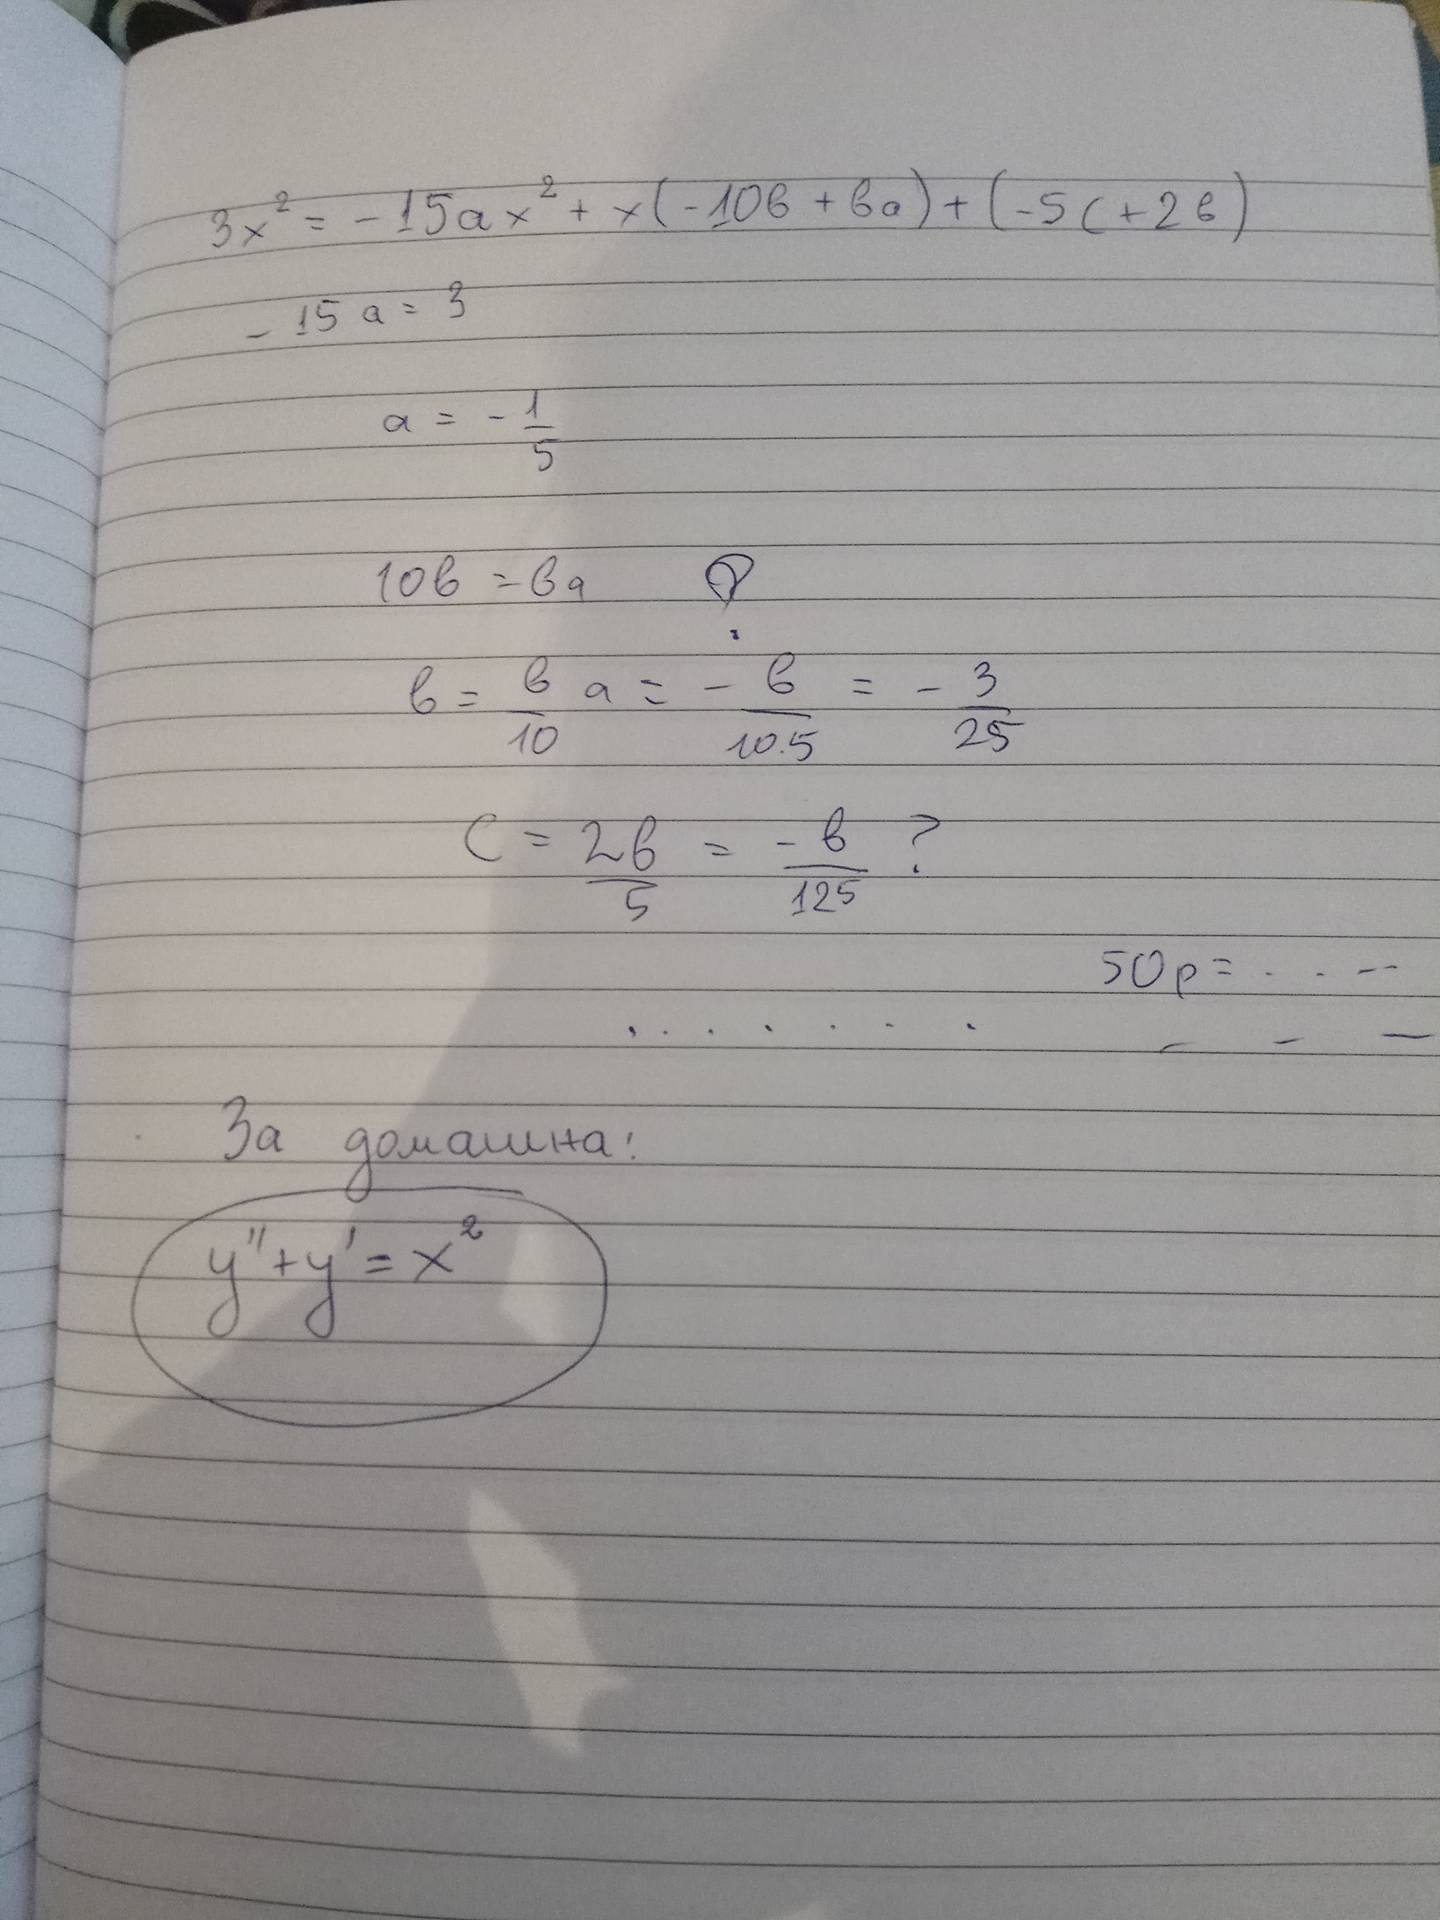 3x² = -15ax² + x(-10в + 6a) + (-5c + 2в)
-15a = 3
a = -1/5
10в = 6a ?
в = 6/10 a = -6/10.5 = -3/25
C = 2в/5 = -6/125 ?
50p = . . --
. . . . . . . - - —
За домашна:
y'' + y' = x²